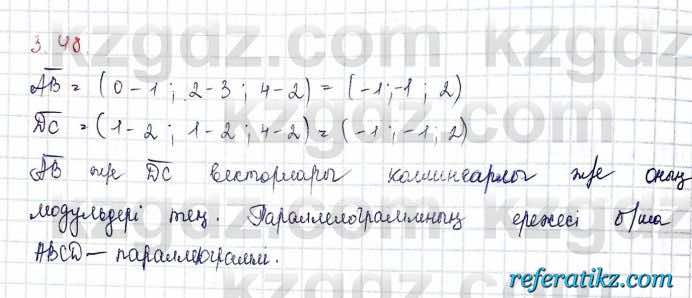 3.48.
AB = (0-1; 2-3; 4-2) = (-1; -1; 2)
DC = (1-2; 1-2; 4-2) = (-1; -1; 2)
AB ж/е DC векторлары коллинеарлы ж/е оның
модульдері тең. Параллелограммның ережесі б/ша
ABCD — параллелограмм.
kzgdz.com
referatikz.com